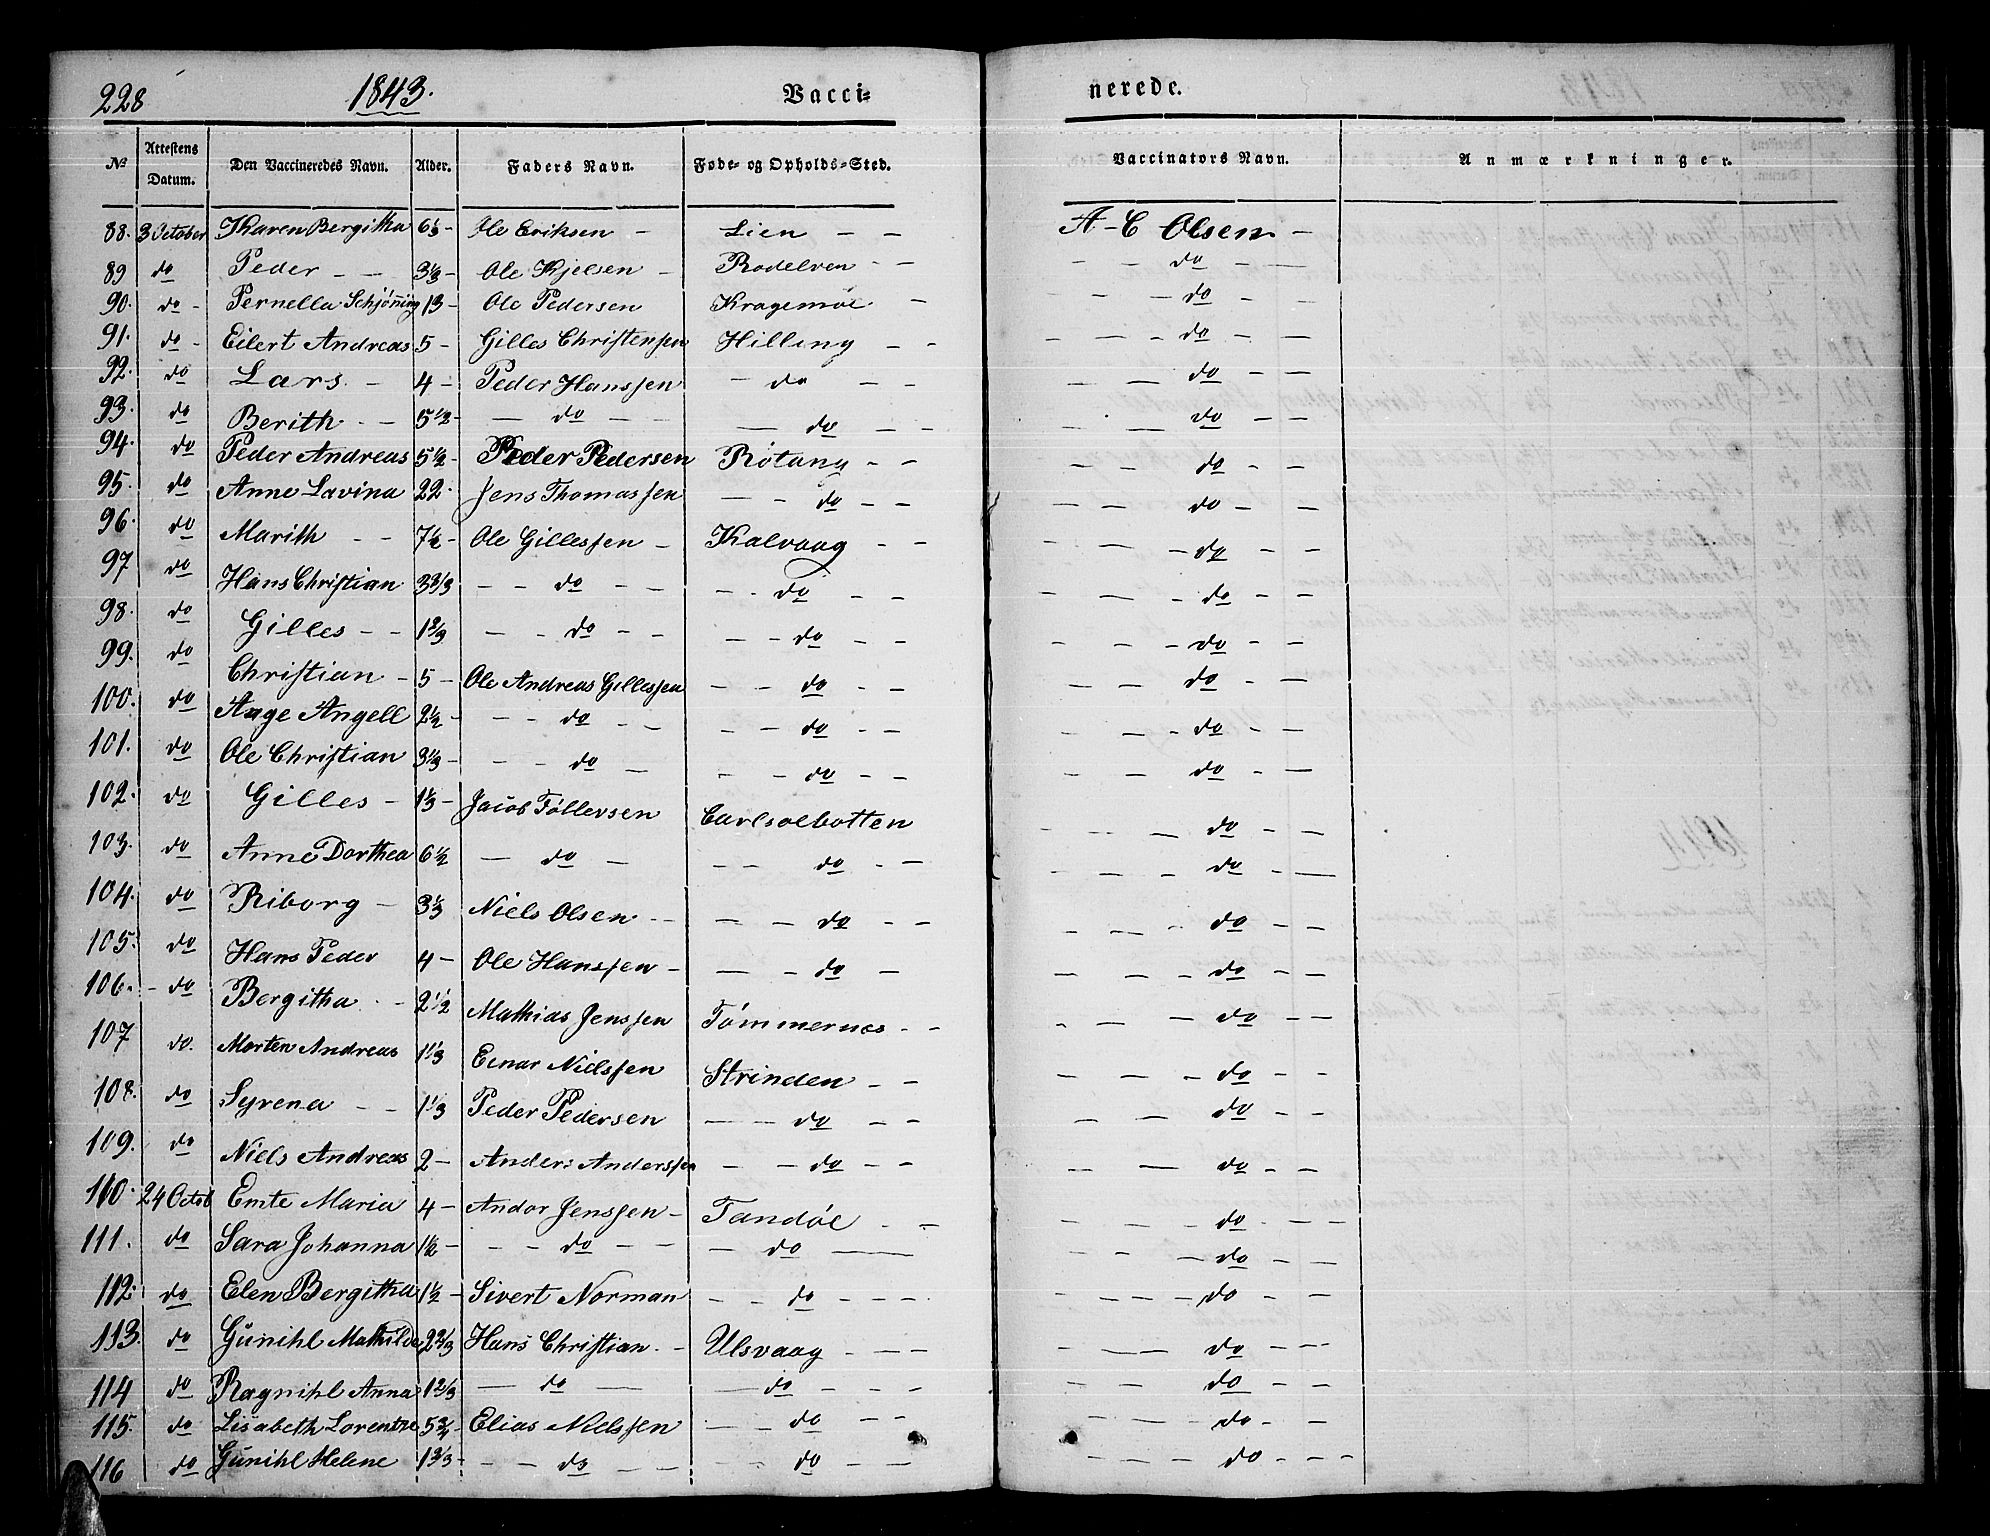 228 1843. Vacci- nerede.
No Attestens Datum. Den Vaccineredes Navn. Alder. Faders Navn. Føde- og Opholds-Sted. Vaccinators Navn. Anmærkninger.
88. 3 October Karen Bergitha 6⅓ - Ole Eriksen - Lien - - A-C Olsen -
89 do Peder - - 3⅓ - Ole Kjelsen - Rodelven - - - - do - -
90. do - Pernella Schjøning 13 - Ole Pedersen Kragemøl - - - - do - -
91. do - Eilert Andreas 5 - Gilles Christenſen Hilling - - - - - do - -
92. do Lars. - 4 - Peder Hansſen - do - - - - do - -
93. do Berith - - 5 1/2 - - do - - - do - - - - do - -
94. do Peder Andreas 5½ - Peder Pedersen Røtang - - - - do - -
95. do Anne Lavina 22 - Jens Thomasſen - - do - - - - do - -
96. do Marith - - 7½ - Ole Gillesſen - Kalvaag - - - - - do - -
97 do Hans Christian 3 2/3 - - do - - - - do - - - - - do - -
98. do Gilles - - 1 2/3 - - do - - - - do - - - - - do - -
99. do Christian - 5 - Ole Andreas Gillesſen - - do - - - - - do - -
100. do Aage Angell 2½ - - - do - - - - do - - - - - do - -
101. do Ole Christian 3⅓ - - - do - - - do - - - - - do - -
102. do Gilles - 1⅓ - Jacob Tøllersen Carlsoelbotten - - - do - -
103. do Anne Dorthea 6½ - do - - - do - - - - - do - -
104. do Riborg - 3⅓ Niels Olsen - - - - do - - - - - do - -
105. do Hans Peder 4 - Ole Hansſen - - - do - - - - do - -
106. - do Bergitha - - 2½ Mathias Jensſen Tømmernæs - - - - - do - -
107 do. Morten Andreas 1⅓ Einar Nielsſen Strinden - - - - - do - -
108. do Syrena - - 1⅓ Peder Pedersen - - do - - - - - do - -
109. do Niels Andreas 2 - Anders Andersſen - - do - - - - do - -
110. 24 Octob Emte Maria 4 - Andor Jensſen - Tandøl - - - - - do - - -
111. do Sara Johanna 1½ - - - do - - - do - - - - do - -
112. do Elen Bergitha 1½ - Sivert Norman - - do - - - - - - do - -
113. do Gunihl Mathilde 2 2/3 Hans Christian - - Ulsvaag - - - - - - do - - -
114 do Ragnihl Anna 1 2/3 - do - - do - - - - - - do - -
115. do Lisabeth Lorentze 5 Elias Nielsſen - - do - - - - - do - -
116 do Gunihl Helene 1 - - do - - - - do - - - - - do - - -